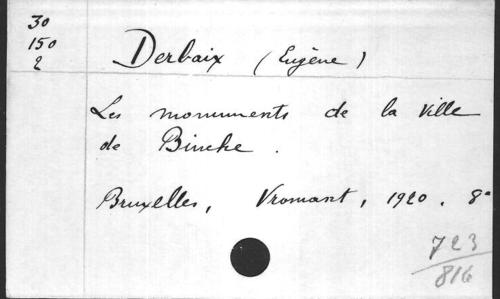 30
150
2
Derbaix (Eugène)
Les monuments de la Ville
de Binche.
Bruxelles, Vromant, 1920. 8°
723
816